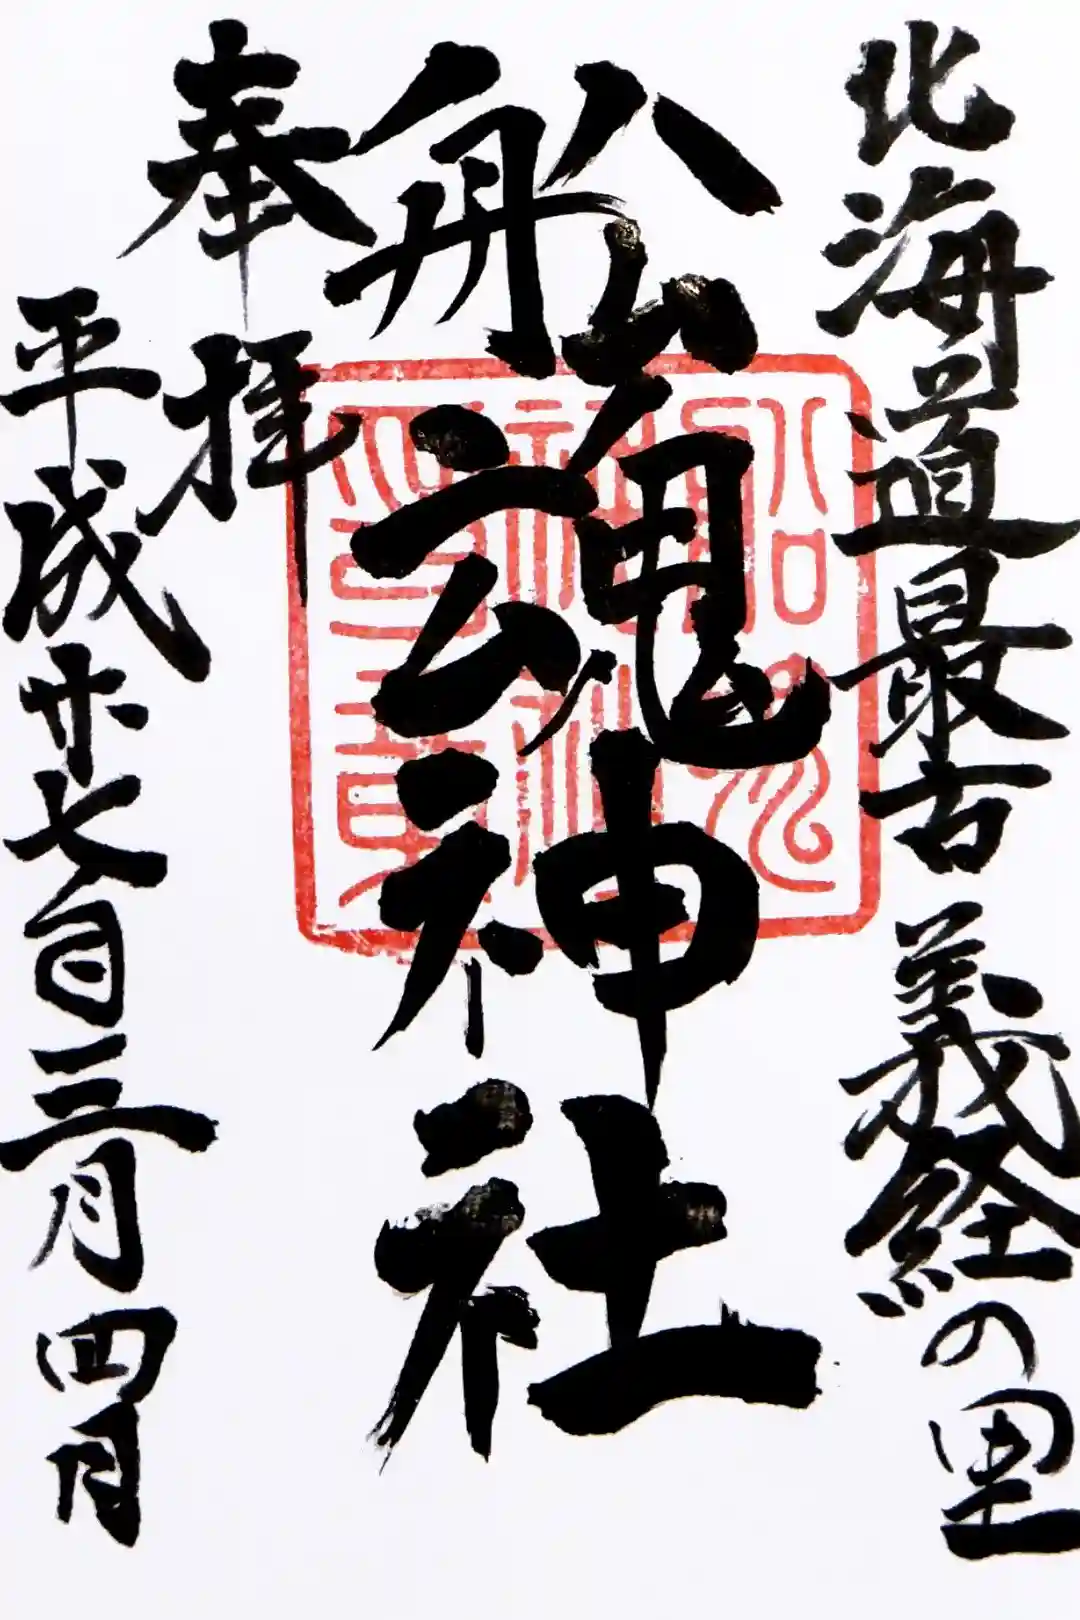 北海道最古 義経の里
船魂神社
奉拝
平成廿七
三月四
船魂
神社